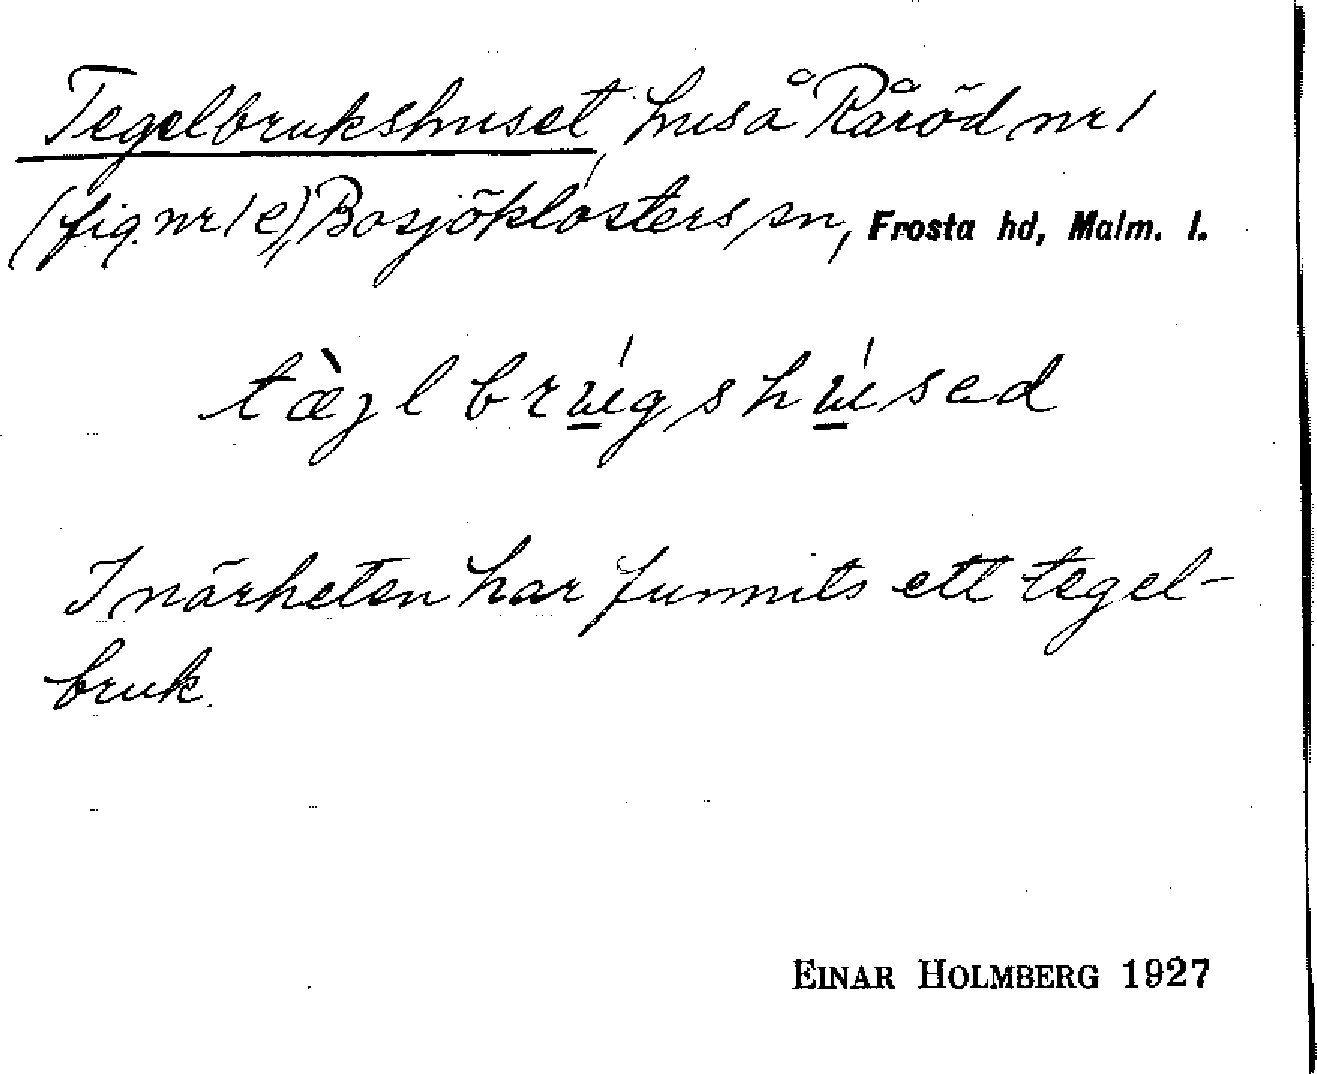 Tegelbrukshuset, hus å Råröd nr 1
(fig. nr 1 e), Bosjöklosters sn, Frosta hd, Malm. l.
tæ̀jl bru̲ı́gshu̲ı́sed
I närheten har funnits ett tegel-
bruk.
EINAR HOLMBERG 1927